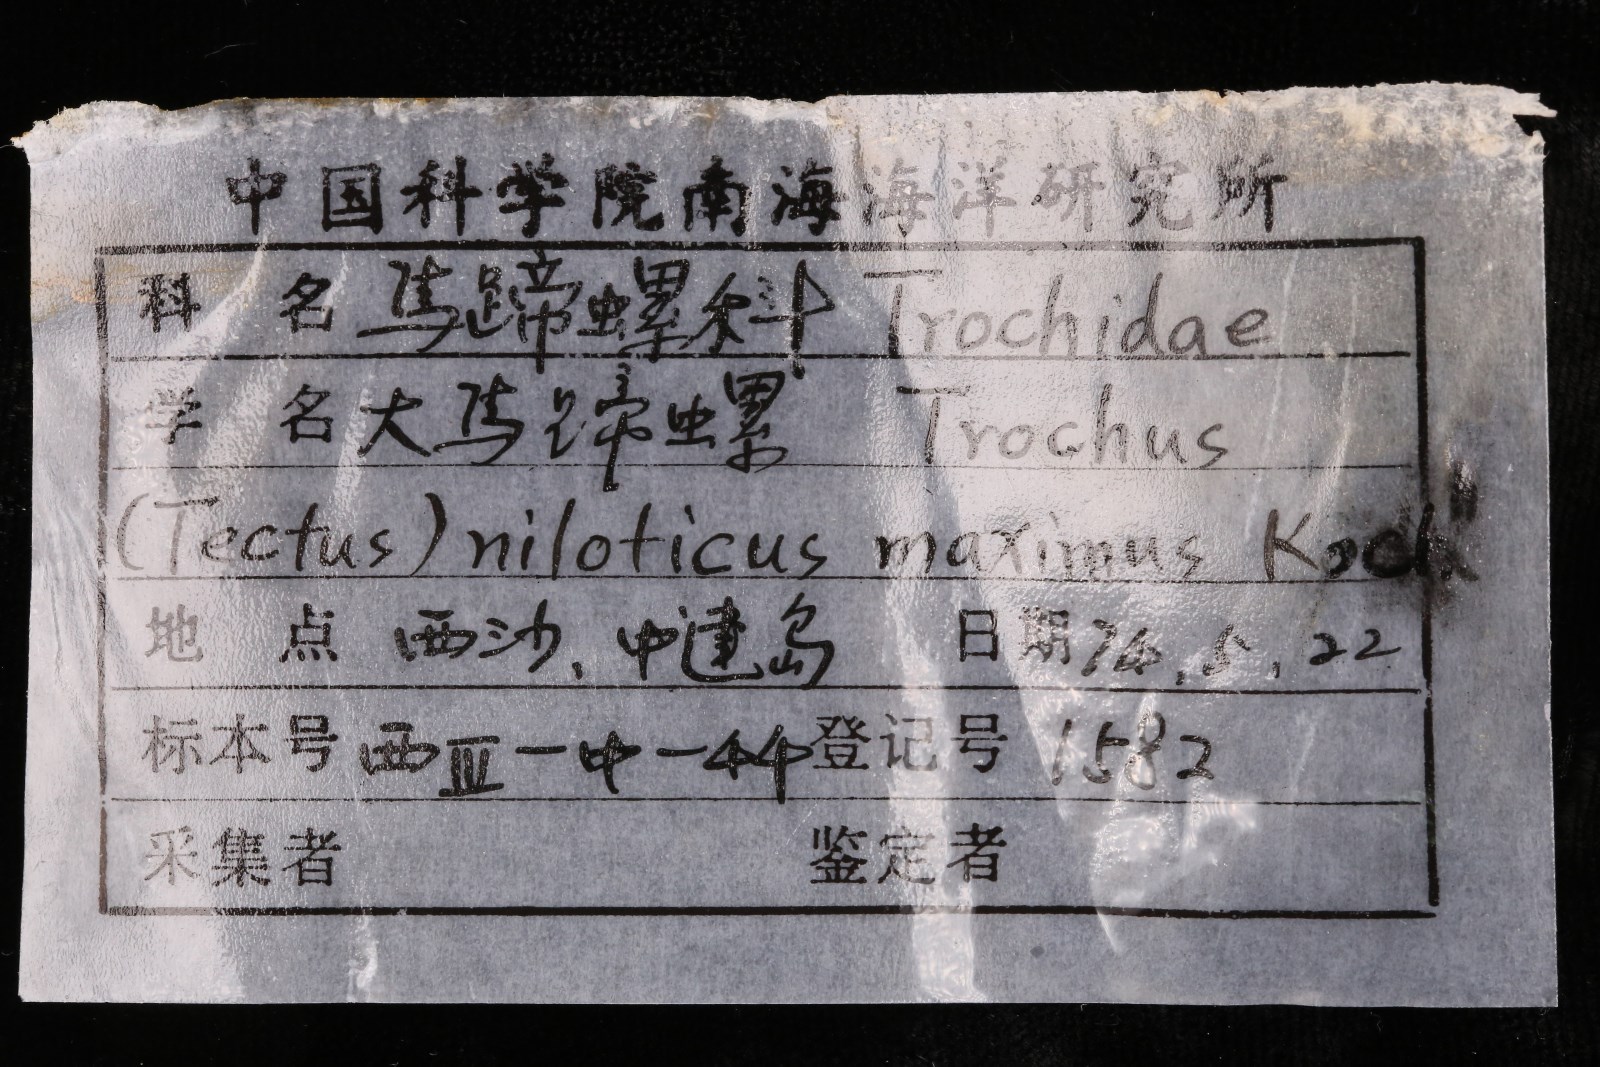 中国科学院南海海洋研究所
科 名 马蹄螺科 Trochidae
学 名 大马蹄螺 Trochus
(Tectus) niloticus maximus Koch
地 点 西沙、中建岛 日期 74.5.22
标本号 西Ⅲ-中-44 登记号 1582
采集者 鉴定者